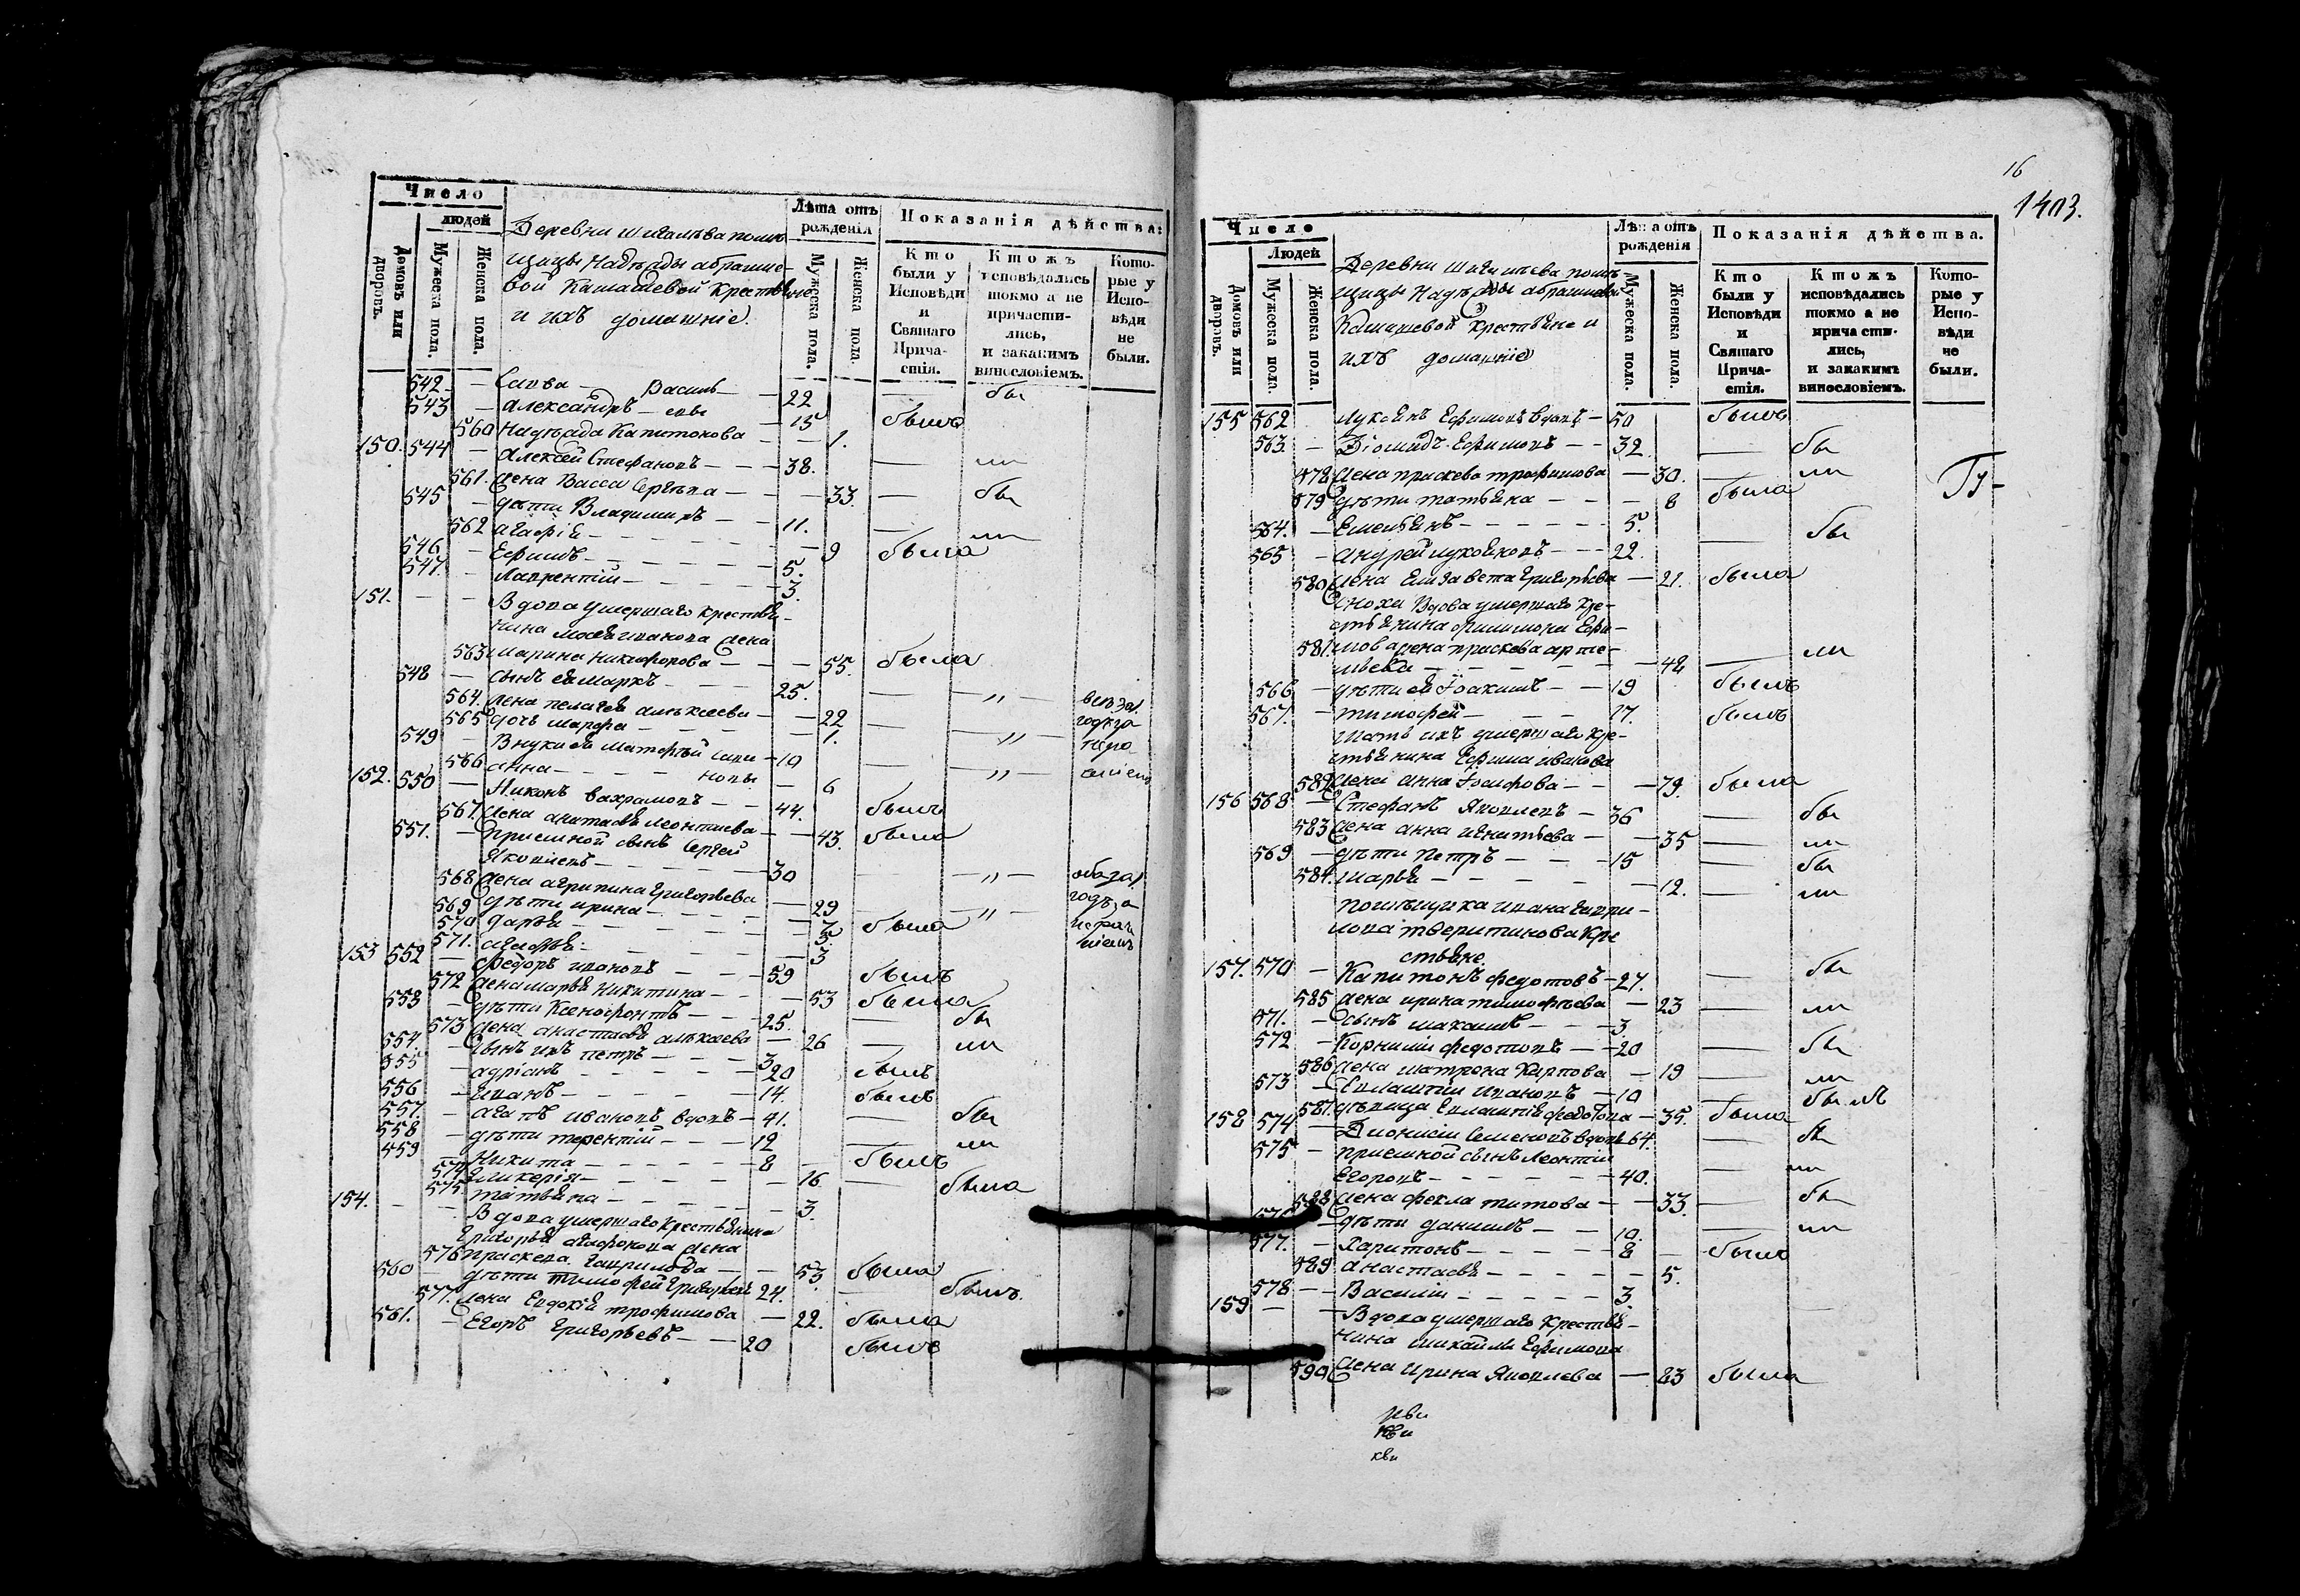 Число
людей
Домовъ или дворовъ.
Мужеска пола.
Женска пола.
Деревни
щицы Надѣжды абраше-
вой Камашевой Крестьяне
и ихъ домашніе.
Лѣта отъ рожденія
Мужеска пола.
Женска пола.
Показанія дѣйства:
Кто были у Исповѣди и Святаго Причастія.
Ктожъ исповѣдались токмо а не причастились, и закакимъ винословіемъ.
Которые у Исповѣди не были.
542 — Савва — Василь — 22 — бы
543 — Александръ — евы — 15 былъ
560 Надѣжда Капитонова — — 1.
150. 544 — Алексей Стефановъ — — — 38. — ли
561. жена Васса Сергѣева — — — 33. — бы
545 — дѣти Владимиръ — — 11. — ли
562 агафія — — — — — 9 была
546 — Ефимъ — — — — 5.
547. — Лаврентій — — — — 3.
151. — — Вдова умершаго крестья-
нина Моисея иванова жена
563 марина Никифорова — — — 55. была
548 — сынъ ея Маркъ — — — 25. — — „ —
564. жена пелагея алексеева — — 22 —
565 дочь марфа — — — — 1. — „ —
549 — Внуки ея Матфѣй Сави- — 10
566 анна — — — — новы — 6 — — „ —
152. 550 — Никонъ вахрамовъ — — 44. былъ
567. жена анастасія Леонтиева — — 43. была
551. — приемной сынъ Сергей
Яковлевъ — — — — 30 — — „ —
568 жена агрипина Григорьева — 29 — — „ — годъ за
569 дѣти ирина — — — — 7 была
570 дарья — — — — — 5
571. агафья — — — — — 3
153 552 — Федоръ ивановъ — — — 59 былъ
572 жена марья Никитина — — — 53 была
553 — дѣти Ксенофонтъ — — — 25. — бы
573 жена анастасія алексеева — 26 — ли
554. — сынъ ихъ петръ — — — 3
555 — адріанъ — — — — — 20 былъ
556 — иванъ — — — — — 14. былъ
557. — агапъ ивановъ вдовъ — 41. — бы
558 — дѣти терентій — — — 12 — ли
559 — Никита — — — — — 8 — былъ
574 гликерія — — — — — 16 — была
575 татьяна — — — — — 3.
154. — — Вдова умершаго крестьянина
Григорья агафонова жена
576 праскева Гаврилова — — 53. была
560 — дѣти тимофей Григорьевъ 24. — былъ.
577. жена Евдокія трофимова — 22. была
561. — Егоръ Григорьевъ — — 20 былъ
16
1403.
Число
Людей
Домовъ или дворовъ.
Мужеска пола
Женска пола.
Деревни
щицы Надѣжды абрашевой
Камашевой Крестьяне и
ихъ домашніе
Лѣта отъ рожденія
Мужеска пола.
Женска пола.
Показанія дѣйства.
Кто были у Исповѣди и Святаго Причастія.
Ктожъ исповѣдались токмо а не причастились, и закакимъ винословіемъ.
Которые у Исповѣди не были.
155 562 Лукоянъ Ефимовъ вдовъ — 50 былъ
563. — Діомидъ Ефимовъ — — 32 — бы
578 жена праскева трофимова — 30. — ли
579 дѣти татьяна — — — 8 была
564. — Емельянъ — — — — — 5. бы
565 — андрей лукояновъ — — — 22. —
580 жена Елизавета Григорьева — 21. была
сноха Вдова умершаго кре-
стьянина филимона Ефи-
581. мова жена праскева арте-
мьева — — — — — 48 — ли
566 — дѣти ея Іоакимъ — — 19 былъ
567. — тимофей — — — 17. былъ
Мать ихъ умершаго кре-
стьянина Ефима иванова
582 жена анна Іосифова — — 79. была
156 568 — Стефанъ Яковлевъ — 36 — бы
583 жена анна игнатьева — — 35 — ли
569 — дѣти Петръ — — — 15 — бы
584. марья — — — — — 12. — ли
помѣщика ивана гаври-
лова тверитинова кре
стьяне.
157. 570 — Капитонъ федотовъ — 27. — бы
585 жена ирина тимофѣева — 23 — ли
571. — сынъ максимъ — — — 3
572 — Корнилій федотовъ — — 20 — бы
586 жена матрона Карпова — 19 — ли
573 — Евлампій ивановъ — 10 — былъ
587. дѣвица Евлампія федотова — 35. была
158 574 — Дионисій Семеновъ вдовъ 64. — бы
575 — приемной сынъ Леонтій
Егоровъ — — — — — 40. — ли
588 жена фекла титова — — 33. — бы
576 — дѣти данилъ — — 10. — ли
577. — Харитонъ — — — — — 8 — былъ
589 анастасія — — — — — 5.
578 — — Василій — — — — — 3.
159 — — Вдова умершаго крестья-
нина михайлы Ефимова
590 жена Ирина Яковлева — 83 была